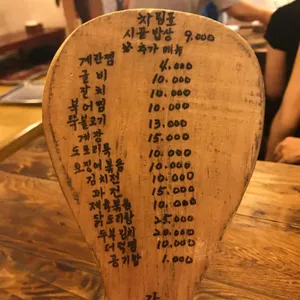 차림표
시골밥상 9,000
추가메뉴
계란찜 4,000
굴비 10,000
갈치 10,000
북어찜 10,000
뚝불고기 13,000
게장 15,000
도토리묵 10,000
오징어볶음 10,000
김치전 10,000
파전 15,000
제육볶음 10,000
닭도리탕 25,000
두부김치 20,000
더덕찜 10,000
공기밥 1,000